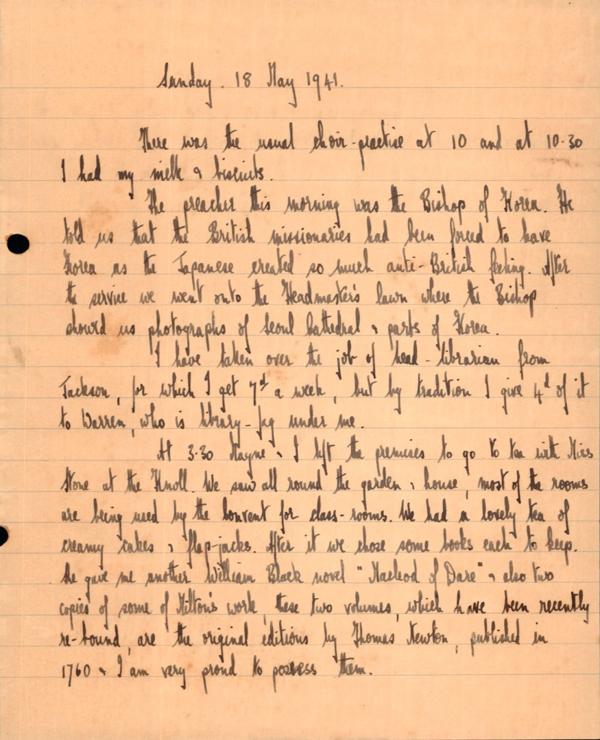 Sunday. 18 May 1941.
There was the usual choir-practise at 10 and at 10-30
I had my milk & biscuits.
The preacher this morning was the Bishop of Korea. He
told us that the British missionaries had been forced to leave
Korea as the Japanese created so much anti-British feeling. After
the service we went onto the Headmaster's lawn where the Bishop
showed us photographs of Seoul Cathedral & parts of Korea.
I have taken over the job of head-librarian from
Jackson, for which I get 7d a week, but by tradition I give 4d of it
to Warren, who is library-fag under me.
At 3.30 Mayne & I left the premises to go to tea with Miss
Stone at the Knoll. We saw all round the garden & house, most of the rooms
are being used by the Convent for class-rooms. We had a lovely tea of
creamy cakes & flap-jacks. After it we chose some books each to keep.
She gave me another William Black novel "Macleod of Dare" & also two
copies of some of Milton's work, these two volumes, which have been recently
re-bound, are the original editions by Thomas Newton, published in
1760 & I am very proud to possess them.